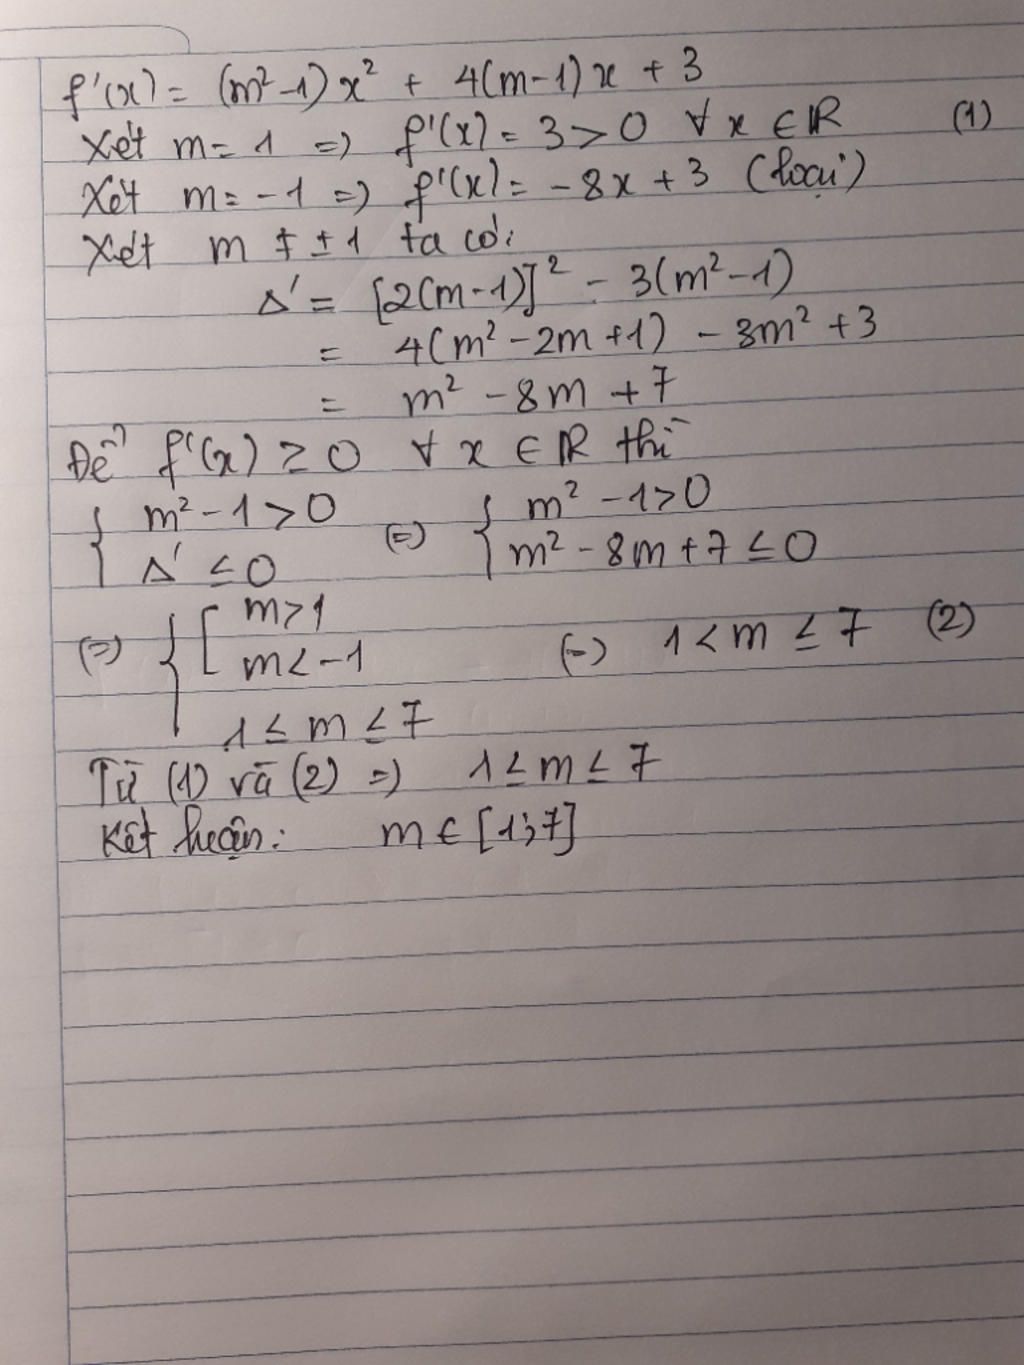 f'(x) = (m² - 1) x² + 4(m - 1) x + 3
Xét m = 1 => f'(x) = 3 > 0 ∀ x ∈ ℝ (1)
Xét m = - 1 => f'(x) = - 8x + 3 (loại)
Xét m ≠ ± 1 ta có:
Δ' = [2(m - 1)]² - 3(m² - 1)
= 4(m² - 2m + 1) - 3m² + 3
= m² - 8m + 7
Để f'(x) ≥ 0 ∀ x ∈ ℝ thì
{ m² - 1 > 0 (=) { m² - 1 > 0
Δ' ≤ 0 m² - 8m + 7 ≤ 0
(=) { [ m > 1
m < - 1 (=) 1 < m ≤ 7 (2)
1 ≤ m ≤ 7
Từ (1) và (2) => 1 ≤ m ≤ 7
Kết luận: m ∈ [1;7]